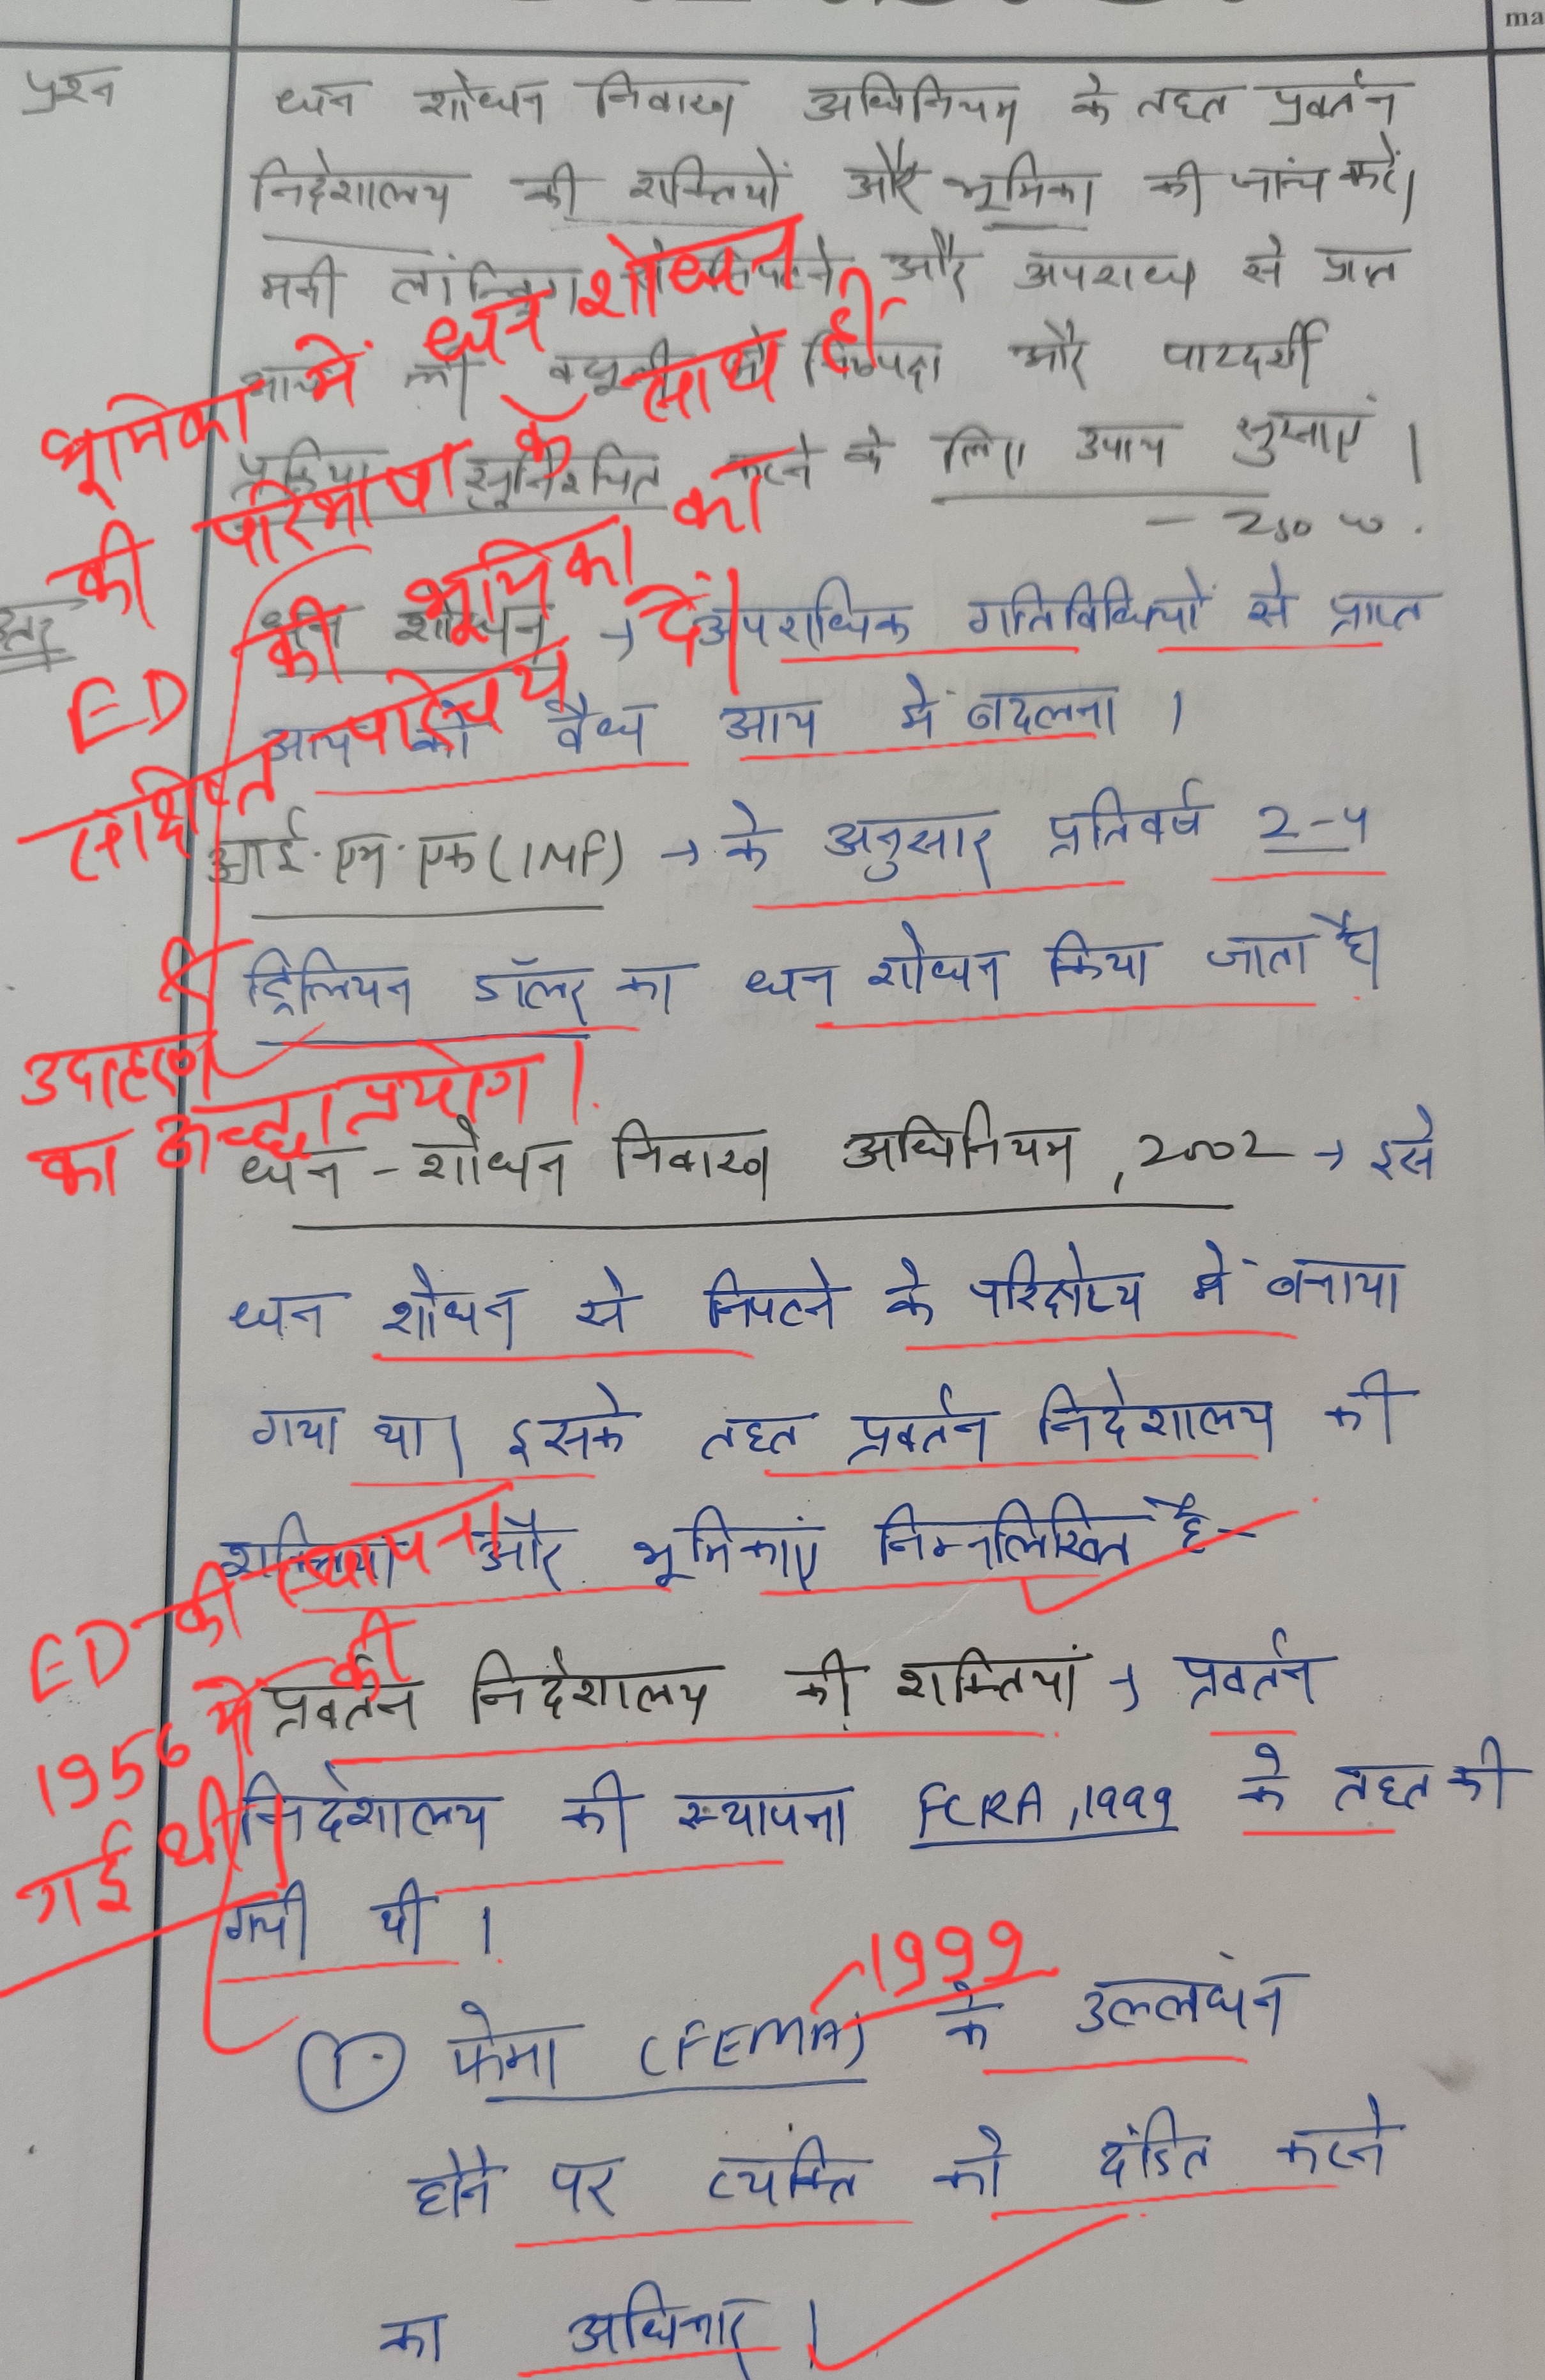 ma
प्रश्न धन शोधन निवारण अधिनियम के तहत प्रवर्तन
निदेशालय की शक्तियों और भूमिका की जांच करें।
मनी लांन्ड्रिंग से निपटने और अपराध से प्राप्त
आय की वसूली में निष्पक्ष और पारदर्शी
प्रक्रिया सुनिश्चित करने के लिए उपाय सुझाएं।
- 250 w.
भूमिका में धन शोधन
की परिभाषा के साथ ही
ED की भूमिका का
संक्षिप्त परिचय दें।
उत्तर धन शोधन → अपराधिक गतिविधियों से प्राप्त
आय को वैध आय में बदलना।
आई.एम.एफ (IMF) → के अनुसार प्रतिवर्ष 2-4
ट्रिलियन डॉलर का धन शोधन किया जाता है।
उदाहरण
का अच्छा प्रयोग।
धन-शोधन निवारण अधिनियम, 2002 → इसे
धन शोधन से निपटने के परिक्षेप्य में बनाया
गया था। इसके तहत प्रवर्तन निदेशालय की
शक्तियां और भूमिकाएं निम्नलिखित है-
ED की स्थापना
1956 में की
गई थी।
प्रवर्तन निदेशालय की शक्तियां → प्रवर्तन
निदेशालय की स्थापना FCRA, 1999 के तहत की
गयी थी।
1999
1. फेमा (FEMA) के उल्लघंन
होने पर व्यक्ति को दंडित करने
का अधिकार।